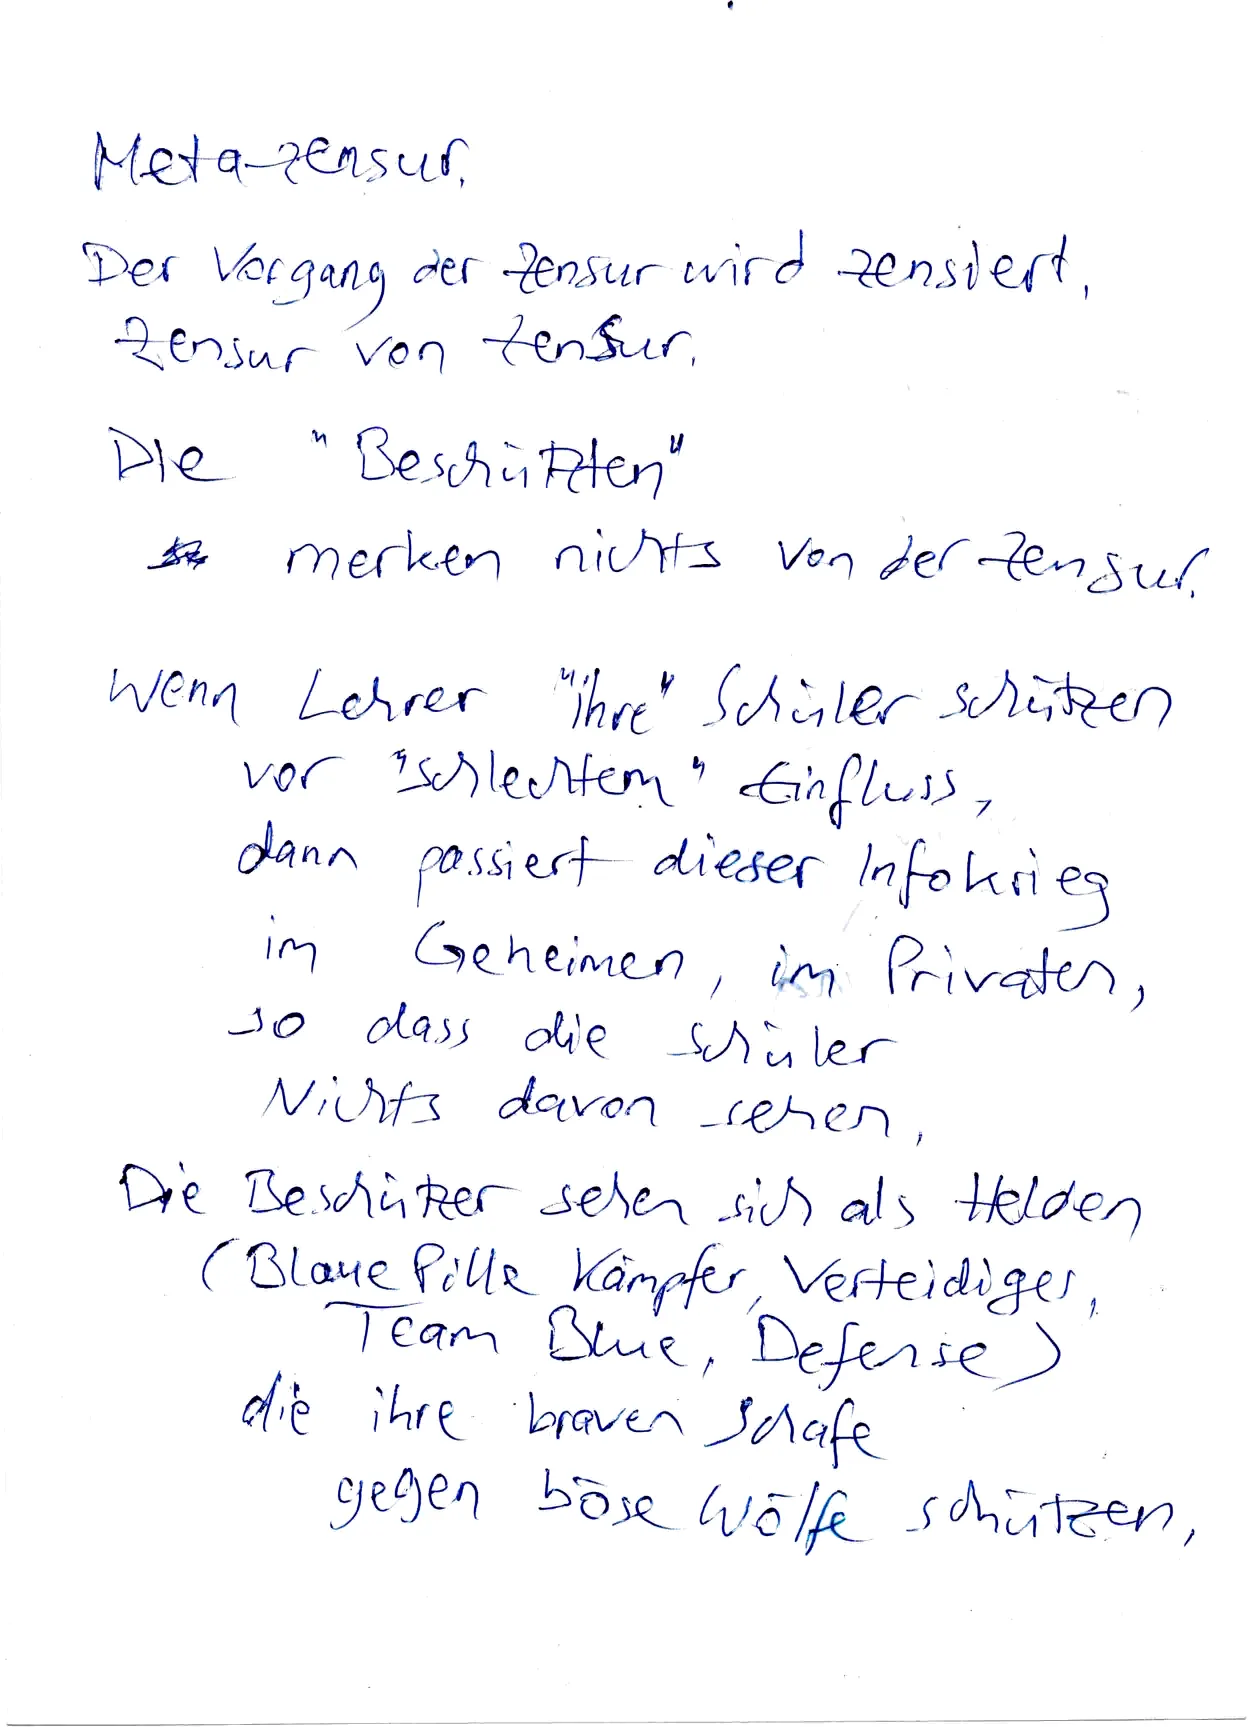 Meta-zensur.
Der Vorgang der Zensur wird zensiert,
Zensur von Zensur.
Die "Beschützten"
merken nichts von der Zensur.
Wenn Lehrer "ihre" Schüler schützen
vor "schlechtem" Einfluss,
dann passiert dieser Infokrieg
im Geheimen, im Privaten,
so dass die Schüler
Nichts davon sehen,
Die Beschützer sehen sich als Helden
(Blaue Pille Kämpfer, Verteidiger,
Team Blue, Defense)
die ihre braven Schafe
gegen böse Wölfe schützen,